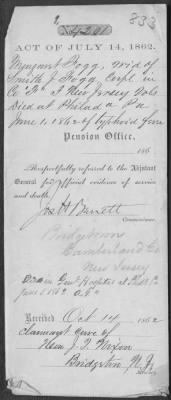 833
4201
ACT OF JULY 14, 1862.
Margaret Fogg, wid of
Smith J Fogg, Corpl in
Co "F" New Jersey Vols
Died at Philad a Pa
June 1, 1862 of typhoid fever
Pension Office,
186
Respectfully referred to the Adjutant
General for official evidence of service
and death.
Jos H Barrett
Commissioner.
Bridgeton
Cumberland Co
New Jersey
Died in Genl Hospital at Phil Pa
June 1 1862
Received Oct 14, 1862
claimant care of
Hon J. T. Nixon
Bridgeton N. J.